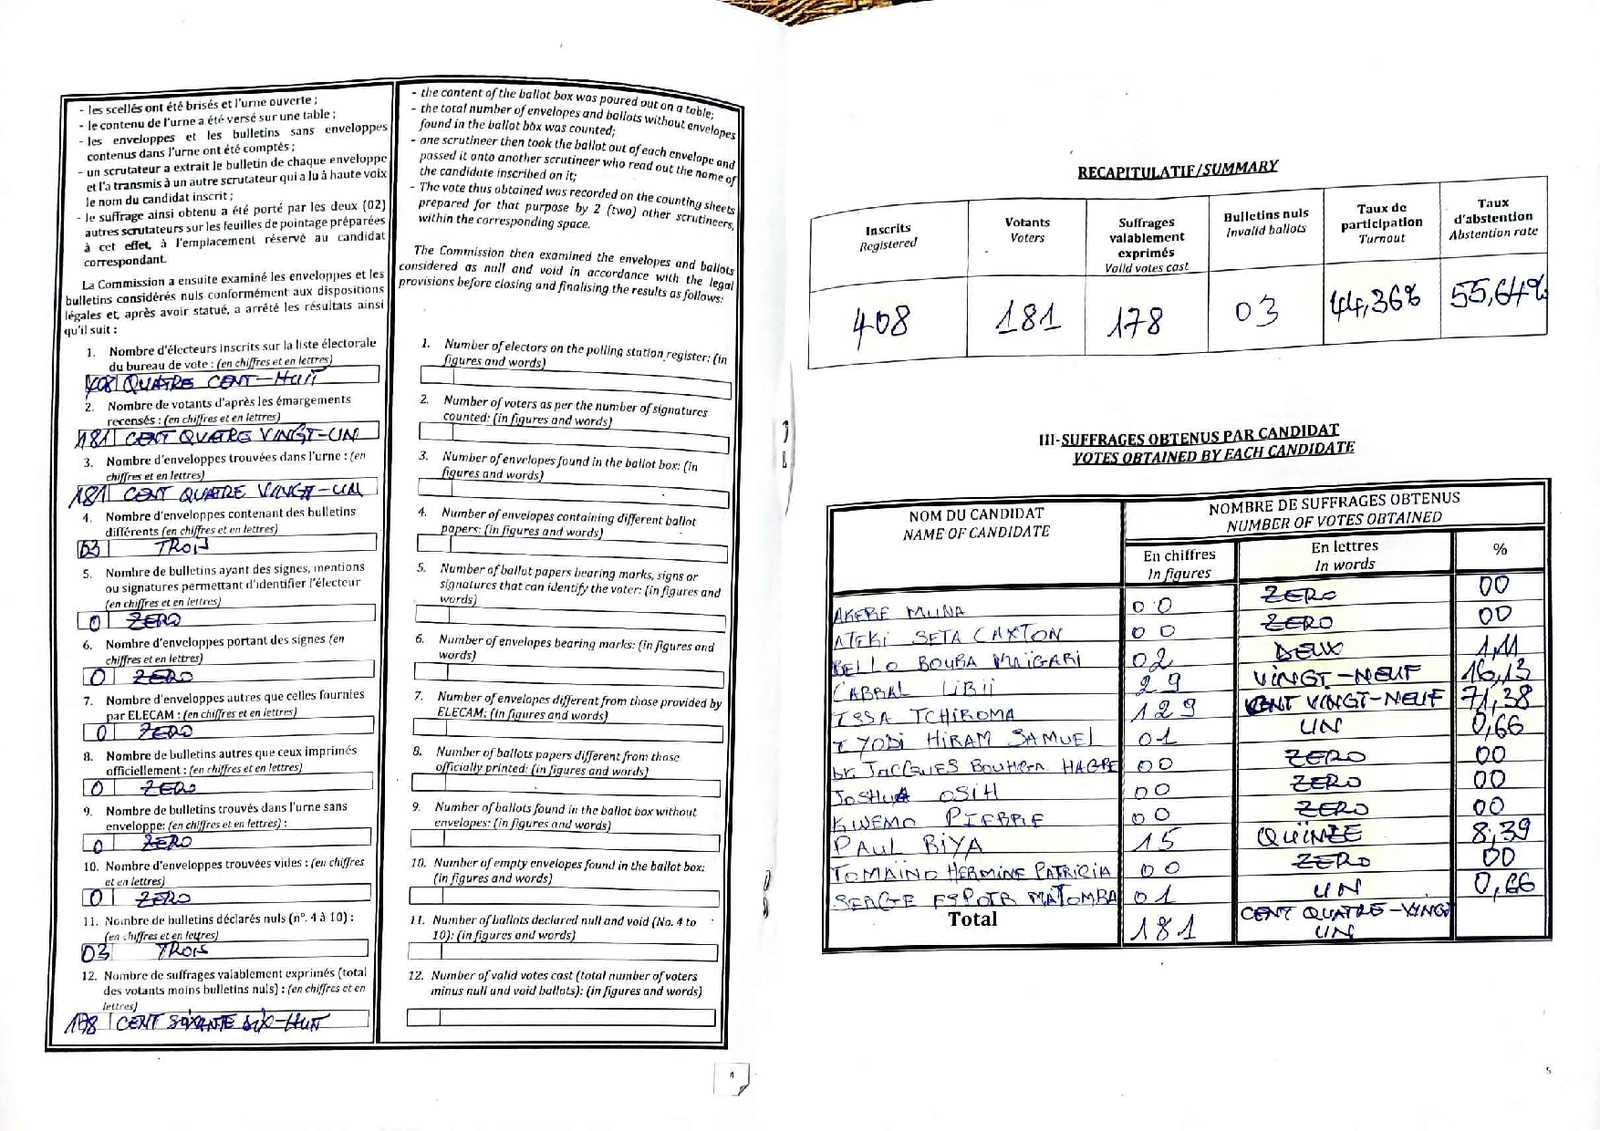 - les scellés ont été brisés et l'urne ouverte ;
- le contenu de l'urne a été versé sur une table ;
- les enveloppes et les bulletins sans enveloppes
contenus dans l'urne ont été comptés ;
- un scrutateur a extrait le bulletin de chaque enveloppe
et l'a transmis à un autre scrutateur qui a lu à haute voix
le nom du candidat inscrit ;
- le suffrage ainsi obtenu a été porté par les deux (02)
autres scrutateurs sur les feuilles de pointage préparées
à cet effet, à l'emplacement réservé au candidat
correspondant.
La Commission a ensuite examiné les enveloppes et les
bulletins considérés nuls conformément aux dispositions
légales et, après avoir statué, a arrêté les résultats ainsi
qu'il suit :
1. Nombre d'électeurs inscrits sur la liste électorale
du bureau de vote : (en chiffres et en lettres)
408 QUATRE CENT-HUIT
2. Nombre de votants d'après les émargements
recensés : (en chiffres et en lettres)
181 CENT QUATRE VINGT-UN
3. Nombre d'enveloppes trouvées dans l'urne : (en
chiffres et en lettres)
181 CENT QUATRE VINGT-UN
4. Nombre d'enveloppes contenant des bulletins
différents (en chiffres et en lettres)
03 TROIS
5. Nombre de bulletins ayant des signes, mentions
ou signatures permettant d'identifier l'électeur
(en chiffres et en lettres)
0 ZERO
6. Nombre d'enveloppes portant des signes (en
chiffres et en lettres)
0 ZERO
7. Nombre d'enveloppes autres que celles fournies
par ELECAM : (en chiffres et en lettres)
0 ZERO
8. Nombre de bulletins autres que ceux imprimés
officiellement : (en chiffres et en lettres)
0 ZERO
9. Nombre de bulletins trouvés dans l'urne sans
enveloppe: (en chiffres et en lettres) :
0 ZERO
10. Nombre d'enveloppes trouvées vides : (en chiffres
et en lettres)
0 ZERO
11. Nombre de bulletins déclarés nuls (n°. 4 à 10) :
(en chiffres et en lettres)
03 TROIS
12. Nombre de suffrages valablement exprimés (total
des votants moins bulletins nuls) : (en chiffres et en
lettres)
178 CENT SOIXANTE DIX-HUIT
- the content of the ballot box was poured out on a table;
- the total number of envelopes and ballots without envelopes
found in the ballot box was counted;
- one scrutineer then took the ballot out of each envelope and
passed it onto another scrutineer who read out the name of
the candidate inscribed on it;
- The vote thus obtained was recorded on the counting sheets
prepared for that purpose by 2 (two) other scrutineers,
within the corresponding space.
The Commission then examined the envelopes and ballots
considered as null and void in accordance with the legal
provisions before closing and finalising the results as follows:
1. Number of electors on the polling station register: (in
figures and words)
2. Number of voters as per the number of signatures
counted: (in figures and words)
3. Number of envelopes found in the ballot box: (in
figures and words)
4. Number of envelopes containing different ballot
papers: (in figures and words)
5. Number of ballot papers bearing marks, signs or
signatures that can identify the voter: (in figures and
words)
6. Number of envelopes bearing marks: (in figures and
words)
7. Number of envelopes different from those provided by
ELECAM: (in figures and words)
8. Number of ballots papers different from those
officially printed: (in figures and words)
9. Number of ballots found in the ballot box without
envelopes: (in figures and words)
10. Number of empty envelopes found in the ballot box:
(in figures and words)
11. Number of ballots declared null and void (No. 4 to
10): (in figures and words)
12. Number of valid votes cast (total number of voters
minus null and void ballots): (in figures and words)
4
RECAPITULATIF/SUMMARY
Inscrits Registered
Votants Voters
Suffrages valablement exprimés Valid votes cast
Bulletins nuls Invalid ballots
Taux de participation Turnout
Taux d'abstention Abstention rate
408 181 178 03 44,36% 55,64%
III-SUFFRAGES OBTENUS PAR CANDIDAT
VOTES OBTAINED BY EACH CANDIDATE
NOM DU CANDIDAT
NAME OF CANDIDATE
NOMBRE DE SUFFRAGES OBTENUS
NUMBER OF VOTES OBTAINED
En chiffres In figures
En lettres In words
%
AKERE MUNA 00 ZERO 00
ATEKI SETA CAXTON 00 ZERO 00
BELLO BOUBA MAÏGARI 02 DEUX 1,11
CABRAL LIBII 29 VINGT-NEUF 16,13
ISSA TCHIROMA 129 CENT VINGT-NEUF 71,38
IYODI HIRAM SAMUEL 01 UN 0,66
DR JACQUES BOUHGA HAGBE 00 ZERO 00
JOSHUA OSIH 00 ZERO 00
KWEMO PIERRE 00 ZERO 00
PAUL BIYA 15 QUINZE 8,39
TOMAINO HERMINE PATRICIA 00 ZERO 00
SERGE ESPOIR MATOMBA 01 UN 0,66
Total 181 CENT QUATRE-VINGT
UN
5